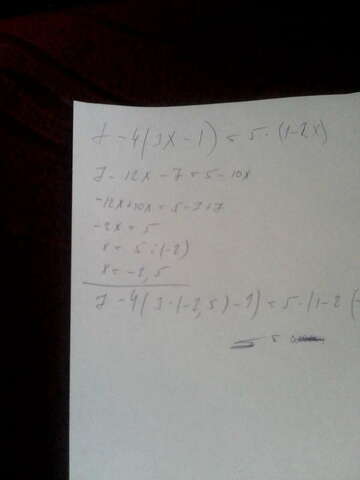 7 - 4(3x - 1) = 5 · (1-2x)
7 - 12x - 7 = 5 - 10x
-12x+10x = 5-7+7
-2x = 5
x = 5 : (-2)
x = -2,5
7 - 4(3·(-2,5)-1) = 5·(1-2(-
= 5